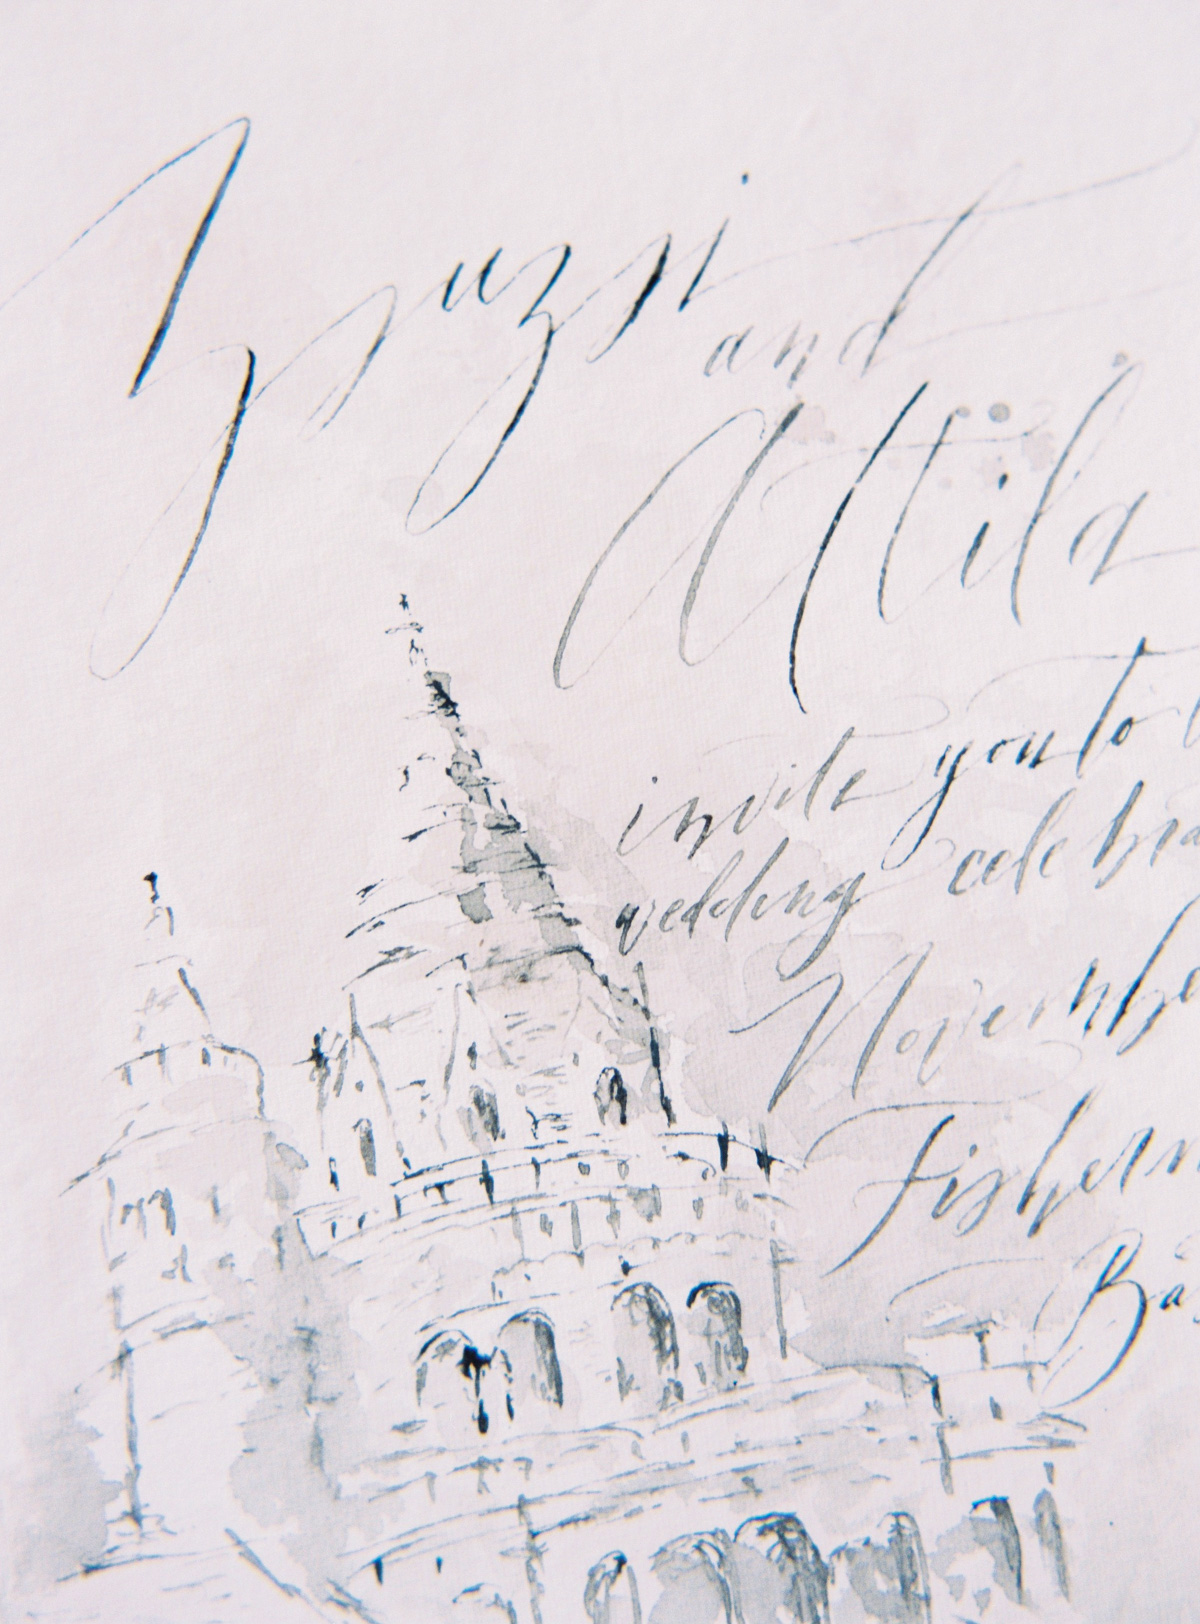 Zsuzsi
and
Attila
invite you to
wedding celebra
Novembe
Fisherm
Bás